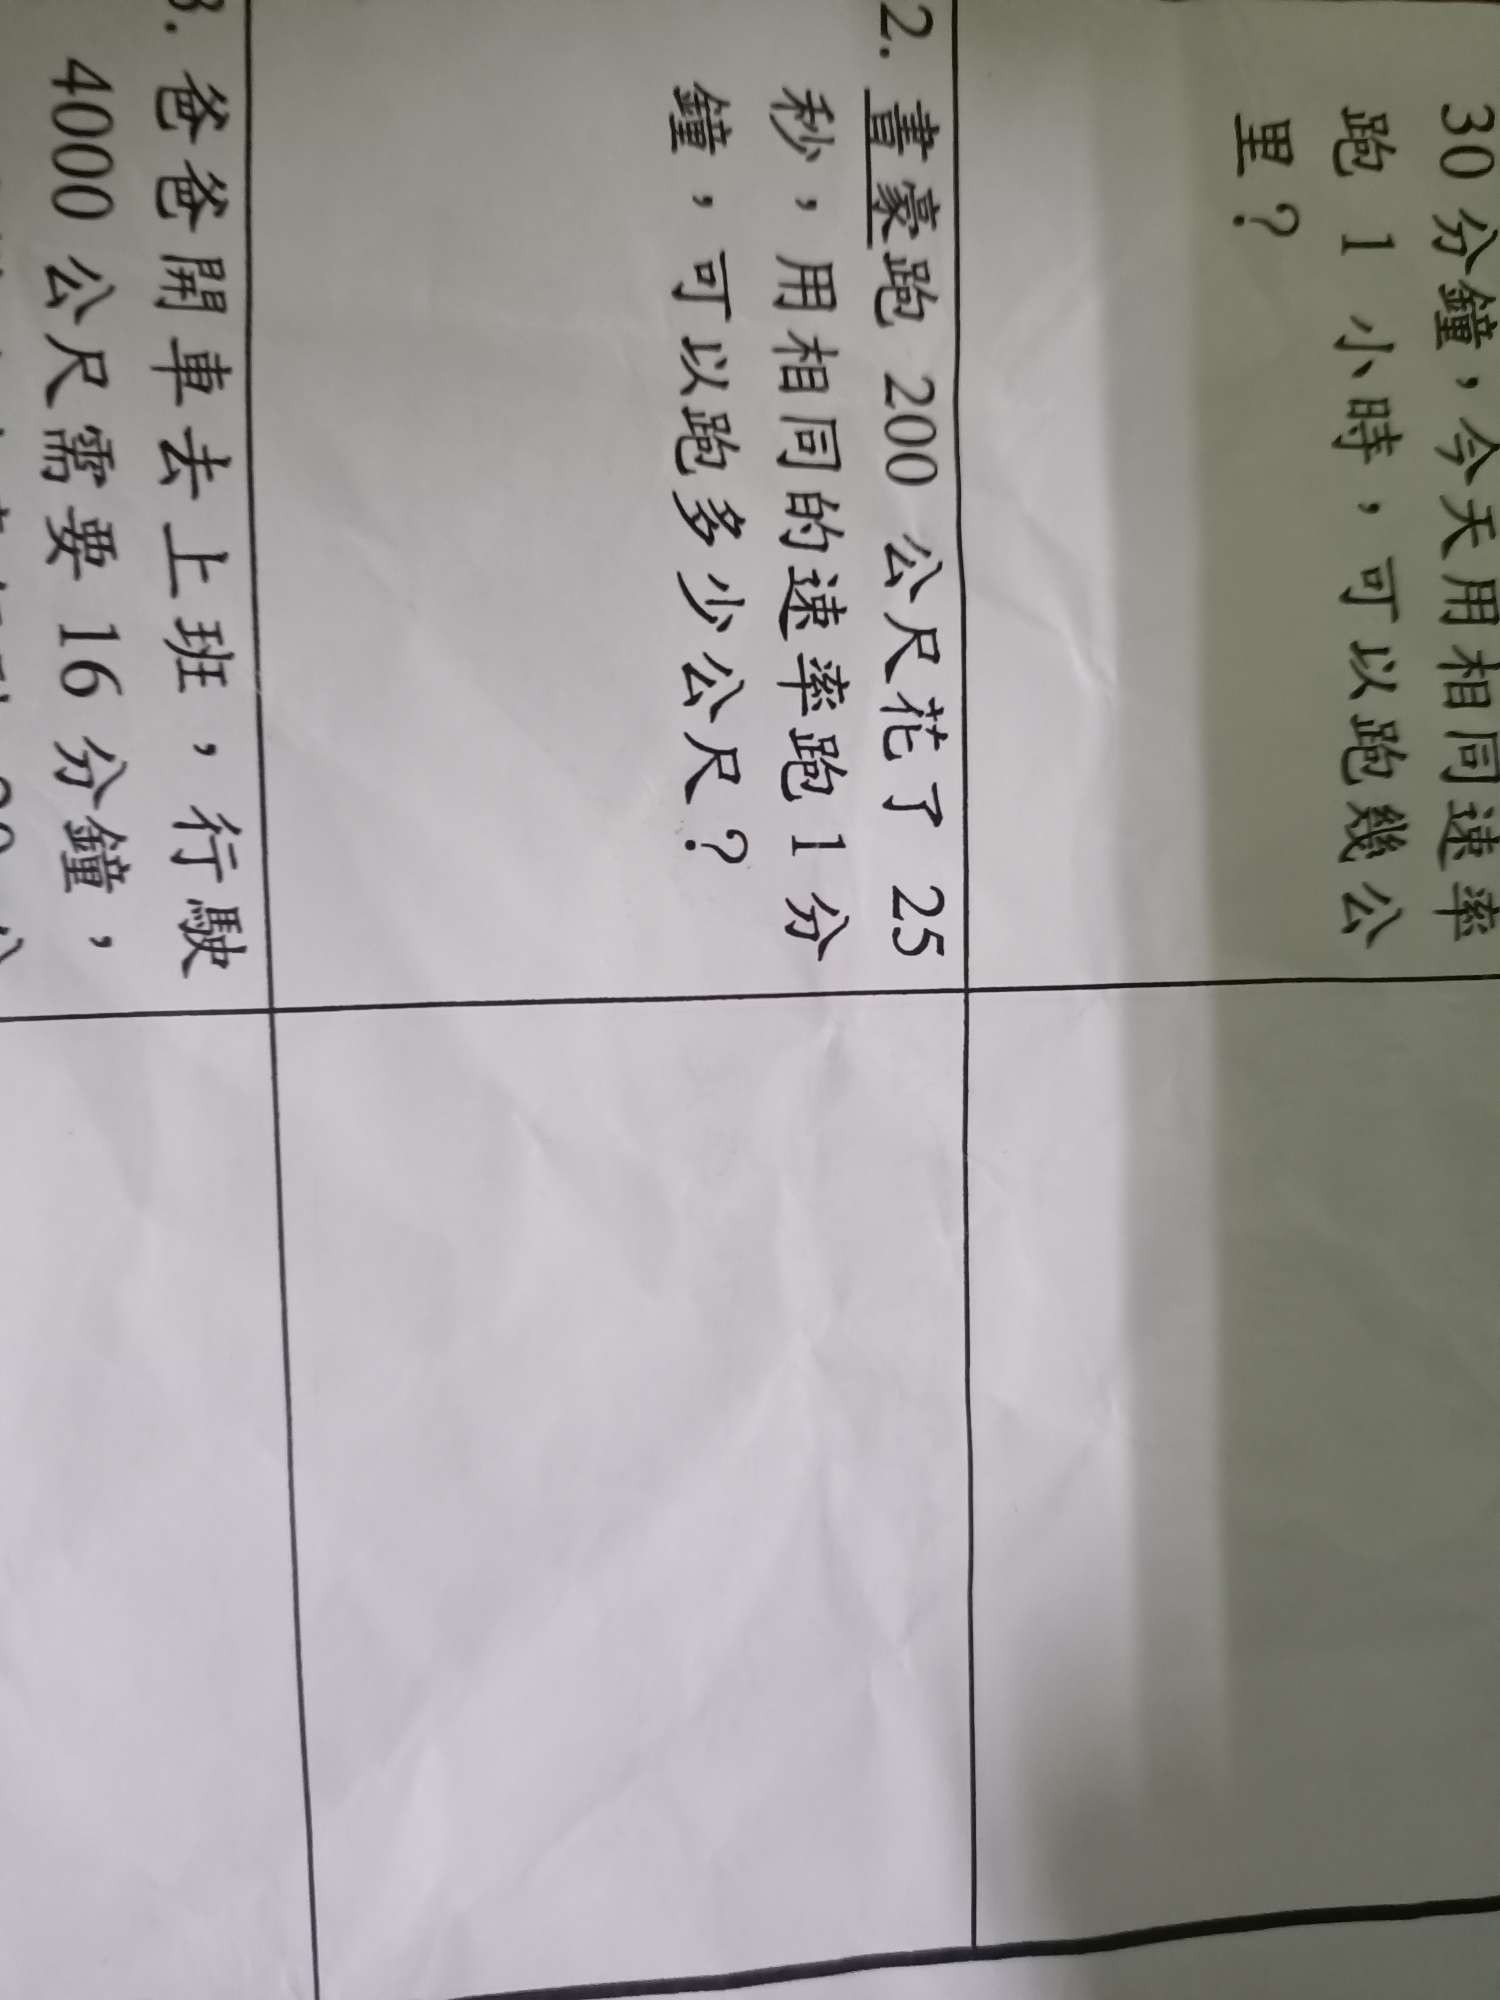 30 分鐘，今天用相同速率
跑 1 小時，可以跑幾公
里？
2. 書豪跑 200 公尺花了 25
秒，用相同的速率跑 1 分
鐘，可以跑多少公尺？
3. 爸爸開車去上班，行駛
4000 公尺需要 16 分鐘，